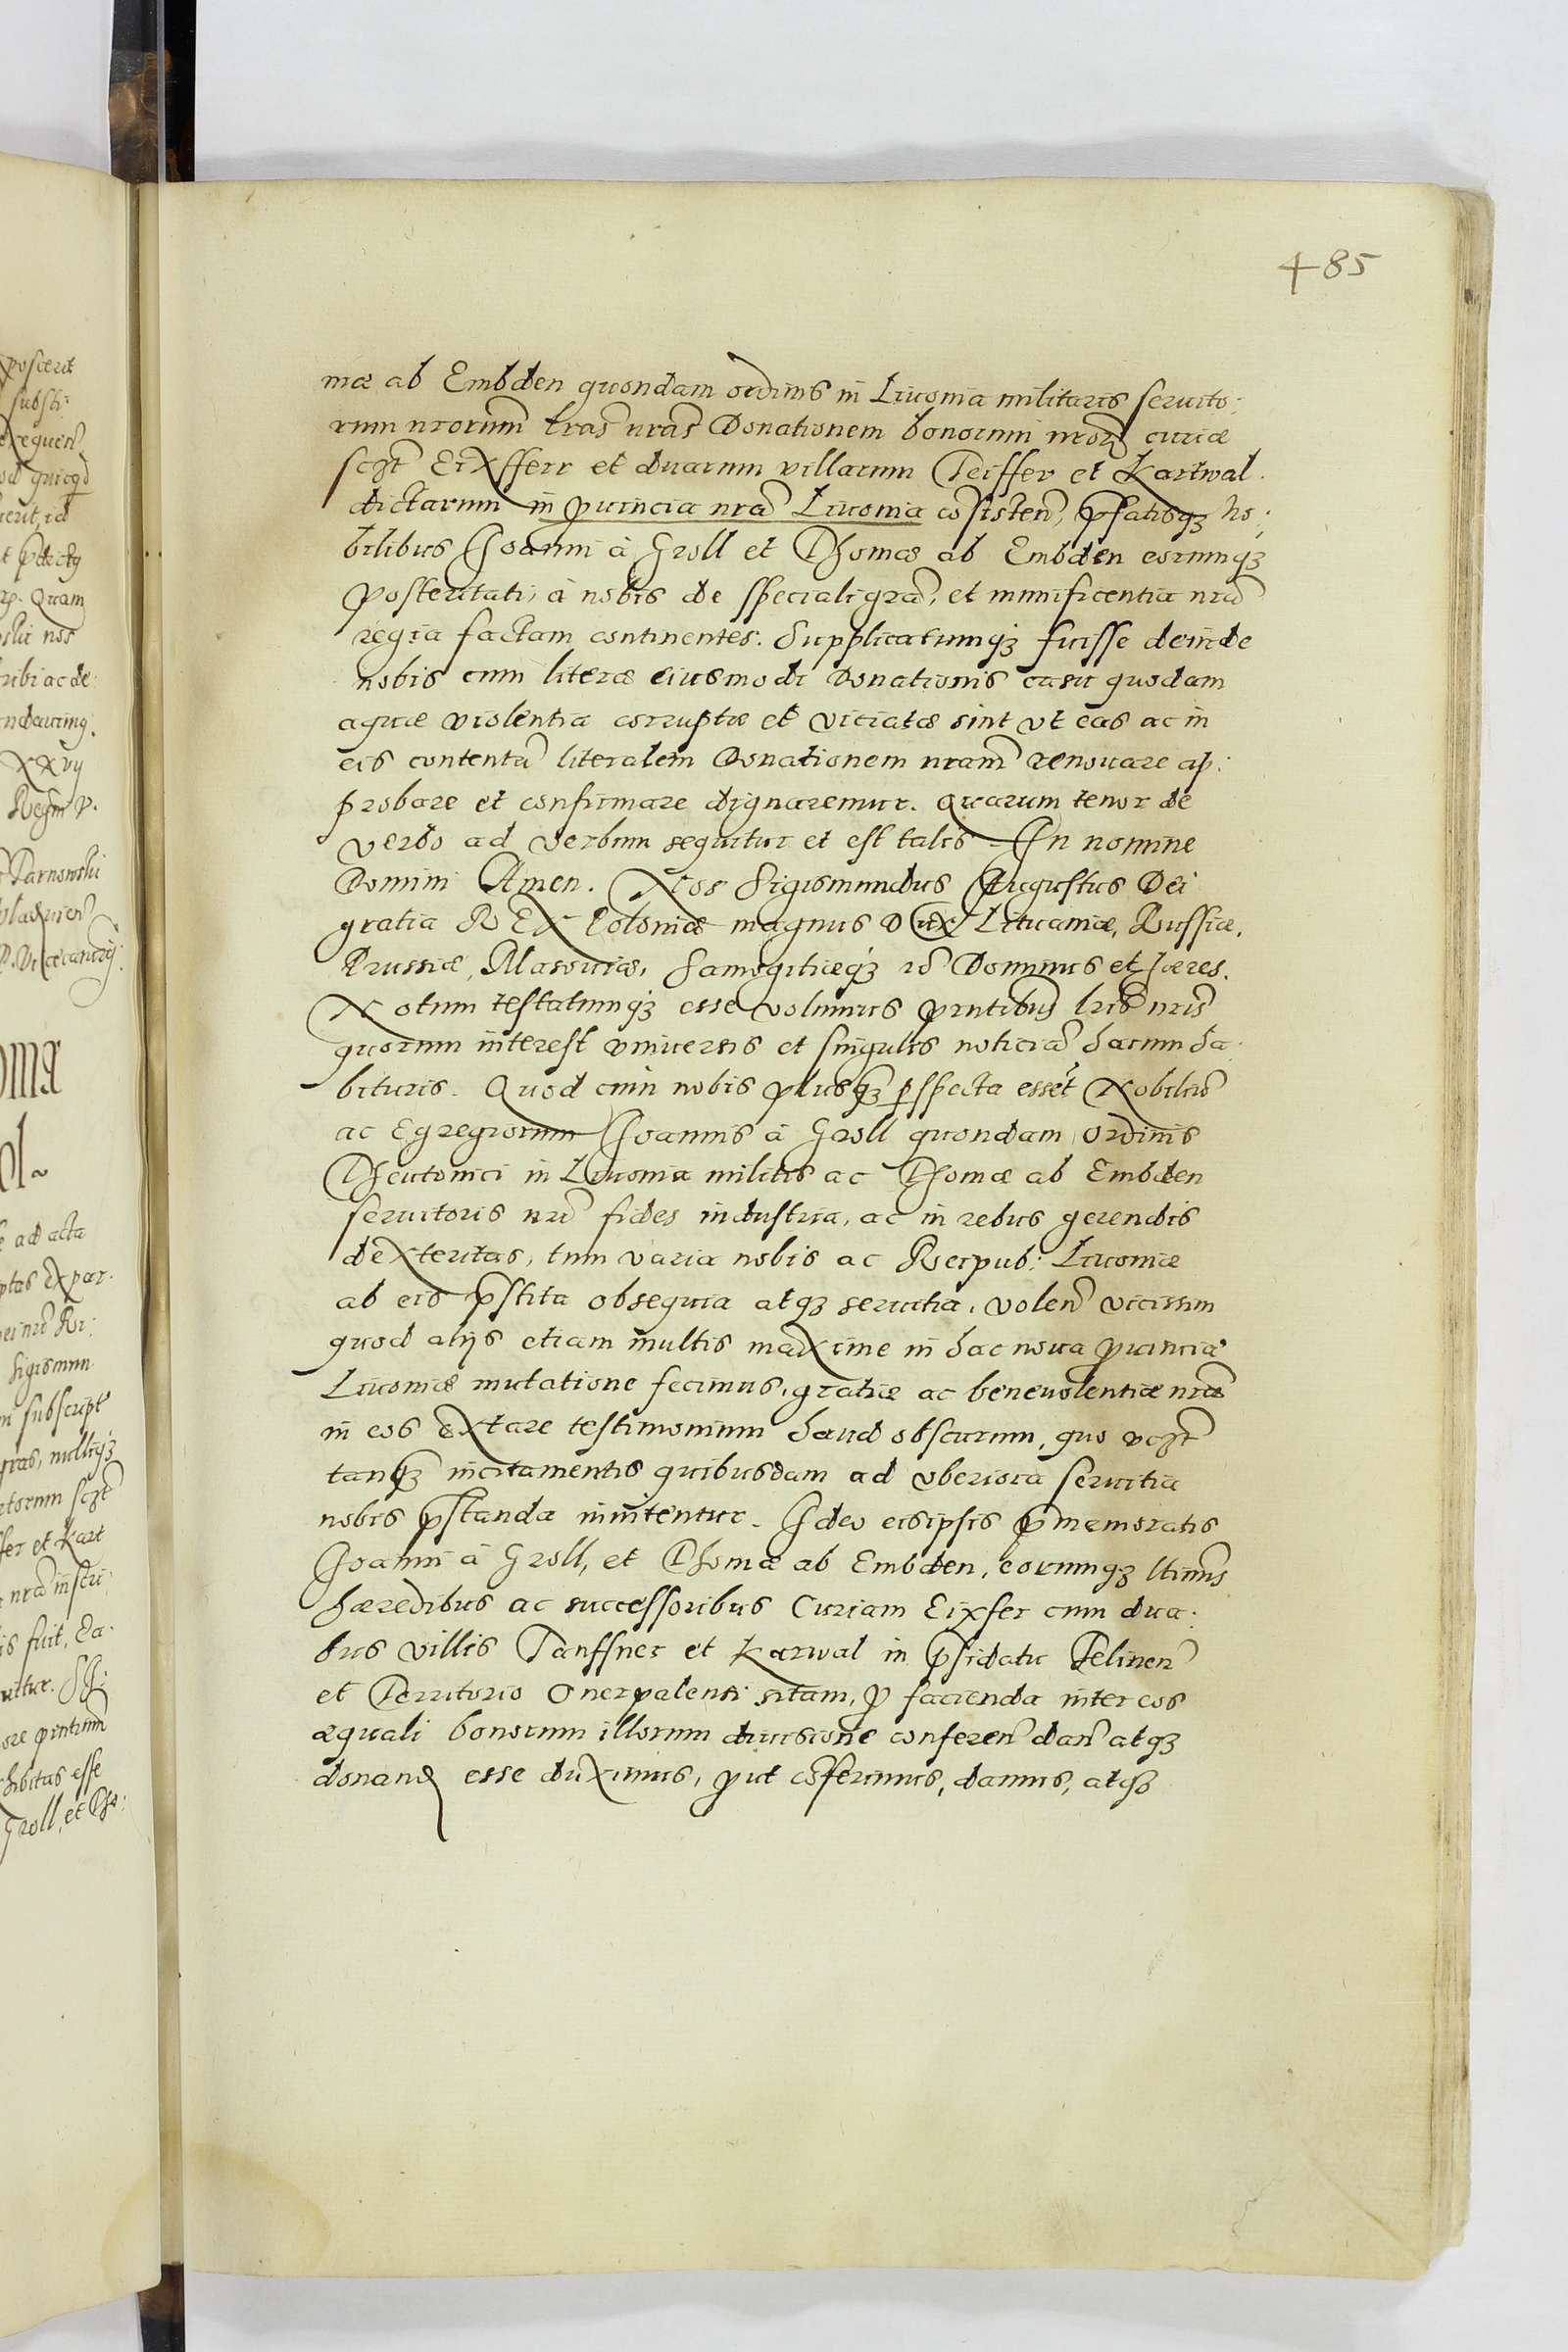 485
mæ ab Embden quondam ordinis in Liuonia militaris seruito:
rum nrorum lras nras Donationem bonorum nror curiæ
sczt Eixfferr et duarum villarum Peiffer et Kartwal
dictarum in puincia nra Liuonia cosisten, pfatisqz no:
bilibus Joanni à Groll et Thomæ ab Embden eorumqz
posteritati, à nobis de speciali gra, et munificentia nra
regia factam continentes. Supplicatumqz fuisse deinde
nobis cum literæ eiusmodi Donationis casu quodam
aquæ violentia corruptæ et viciatæ sint vt eas ac in
eis contenta literalem Donationem nram renouare ap:
probare et confirmare dignaremur. Quarum tenor de
verbo ad verbum sequitur et est talis. In nomine
Domini Amen. Nos Sigismundus Augustus Dei
gratia REX Poloniæ magnus Dux Lituaniæ, Russiæ,
Prussiæ, Masouiæ, Samogitiæqz Dominus et hæres.
Notum testatumqz esse volumus pntibus lris nris
quorum interest vniuersis et singulis noticia harum ha:
bituris. Quod cum nobis plusqz pspecta esset Nobiliu
ac Egregiorum Joannis à Groll quondam ordinis
Theutonici in Liuonia militis ac Thomæ ab Embden
seruitoris nri fides industria, ac in rebus gerendis
dexteritas, tum varia nobis ac Reipub: Liuoniæ
ab eis pstita obsequia atqz seruitia, volen vicissim
quod alijs etiam multis maxime in hac noua puinciæ
Liuoniæ mutatione fecimus, gratiæ ac beneuolentiæ nræ
in eos extare testimonium haud obscurum, quo vczt
tanqz incitamentis quibusdam ad vberiora seruitia
nobis pstanda inuitentur. Ideo eis ipsis pmemoratis
Joanni à Groll, et Thomæ ab Embden, eorumqz ltimis
hæredibus ac successoribus Curiam Eixfer cum dua:
bus villis Tanffner et Karwal in psidatu Felinen
et Territorio Onerpalensi sitam, p facienda inter eos
æquali bonorum illorum diuisione conferen dan atqz
donand esse duximus, put coferimus, damus, atqz